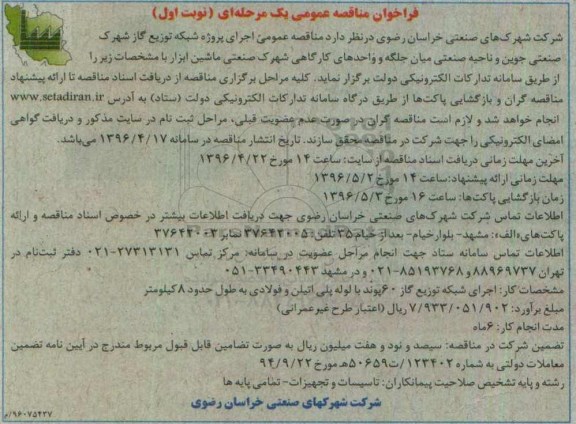 فراخوان مناقصه عمومی یک مرحله‌ای (نوبت اول)
شرکت شهرک‌های صنعتی خراسان رضوی درنظر دارد مناقصه عمومی اجرای پروژه شبکه توزیع گاز شهرک
صنعتی جوین و ناحیه صنعتی میان جلگه و واحدهای کارگاهی شهرک صنعتی ماشین ابزار با مشخصات زیر را
از طریق سامانه تدارکات الکترونیکی دولت برگزار نماید. کلیه مراحل برگزاری مناقصه از دریافت اسناد مناقصه تا ارائه پیشنهاد
مناقصه گران و بازگشایی پاکت‌ها از طریق درگاه سامانه تدارکات الکترونیکی دولت (ستاد) به آدرس www.setadiran.ir
انجام خواهد شد و لازم است مناقصه گران در صورت عدم عضویت قبلی، مراحل ثبت نام در سایت مذکور و دریافت گواهی
امضای الکترونیکی را جهت شرکت در مناقصه محقق سازند. تاریخ انتشار مناقصه در سامانه ۱۳۹۶/۴/۱۷ می‌باشد.
آخرین مهلت زمانی دریافت اسناد مناقصه از سایت: ساعت ۱۴ مورخ ۱۳۹۶/۴/۲۲
مهلت زمانی ارائه پیشنهاد: ساعت ۱۴ مورخ ۱۳۹۶/۵/۲
زمان بازگشایی پاکت‌ها: ساعت ۱۶ مورخ ۱۳۹۶/۵/۳
اطلاعات تماس شرکت شهرک‌های صنعتی خراسان رضوی جهت دریافت اطلاعات بیشتر در خصوص اسناد مناقصه و ارائه
پاکت‌های«الف»: مشهد- بلوارخیام- بعد از خیام ۳۵ تلفن: ۳۷۶۴۳۰۰۵ نمابر ۳۷۶۴۴۰۰۳
اطلاعات تماس سامانه ستاد جهت انجام مراحل عضویت در سامانه: مرکز تماس ۲۷۳۱۳۱۳۱-۰۲۱ دفتر ثبت‌نام در
تهران ۸۸۹۶۹۷۳۷ و ۸۵۱۹۳۷۶۸-۰۲۱ و در مشهد ۳۳۴۹۰۴۴۳-۰۵۱
مشخصات کار: اجرای شبکه توزیع گاز ۶۰پوند با لوله پلی اتیلن و فولادی به طول حدود ۸کیلومتر
مبلغ برآورد: ۷/۹۳۳/۰۵۱/۹۰۲ ریال (اعتبار از طرح غیرعمرانی)
مدت انجام کار: ۶ماه
تضمین شرکت در مناقصه: سیصد و نود و هفت میلیون ریال به صورت تضامین قابل قبول مربوط مندرج در آیین نامه تضمین
معاملات دولتی به شماره ۱۲۳۴۰۲/ت۵۰۶۵۹هـ مورخ ۹۴/۹/۲۲
رشته و پایه تشخیص صلاحیت پیمانکاران: تاسیسات و تجهیزات- تمامی پایه ها
شرکت شهرکهای صنعتی خراسان رضوی
۹۶۰۷۵۴۲۷/م